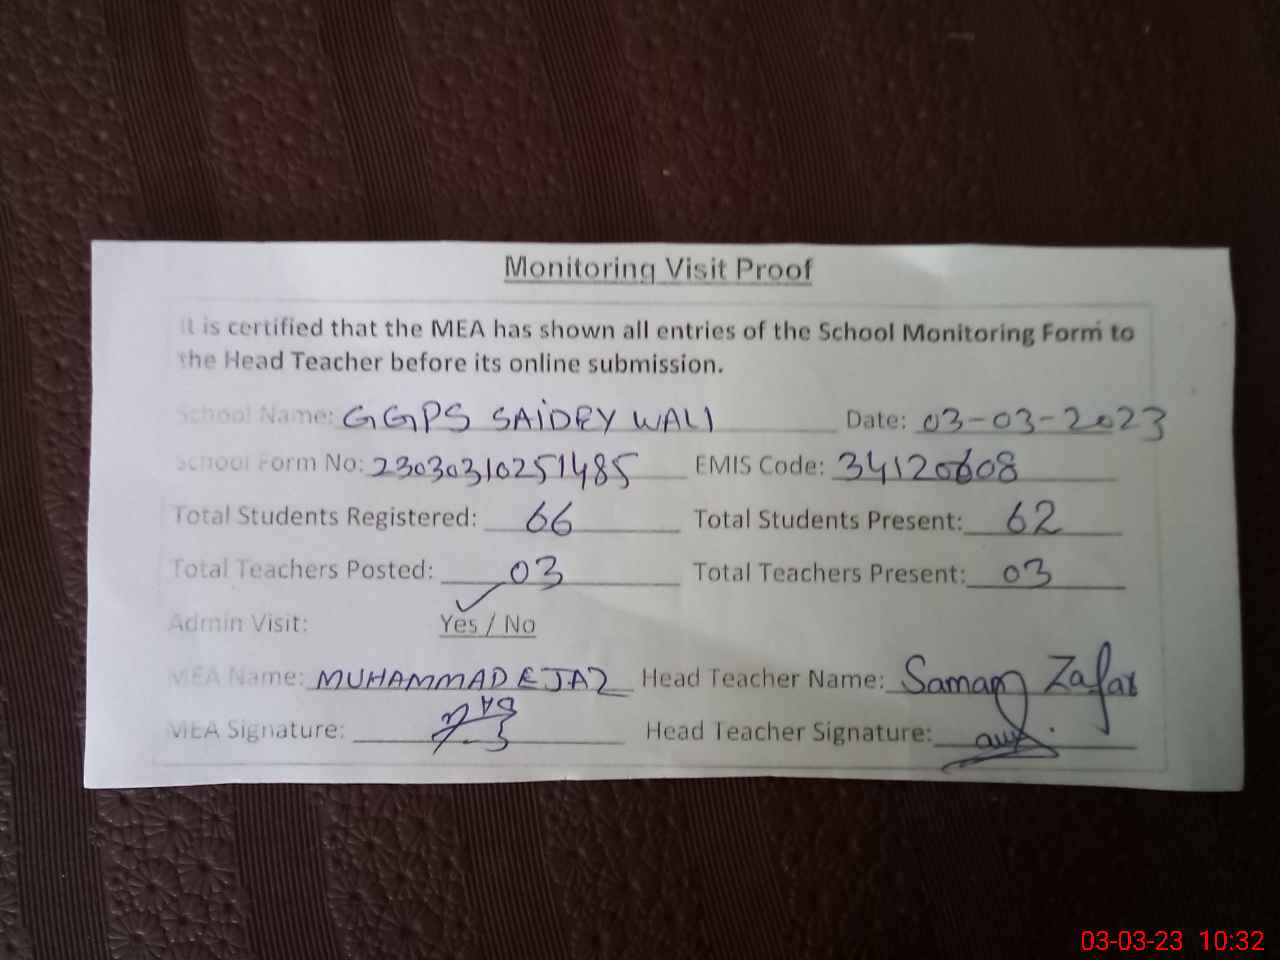 Monitoring Visit Proof
It is certified that the MEA has shown all entries of the School Monitoring Form to
the Head Teacher before its online submission.
School Name: GGPS SAIDRY WALI Date: 03-03-2023
School Form No: 23030310251485 EMIS Code: 34120608
Total Students Registered: 66 Total Students Present: 62
Total Teachers Posted: 03 Total Teachers Present: 03
Admin Visit: Yes / No
MEA Name: MUHAMMAD EJAZ Head Teacher Name: Zafar
MEA Signature: Head Teacher Signature:
03-03-23 10:32